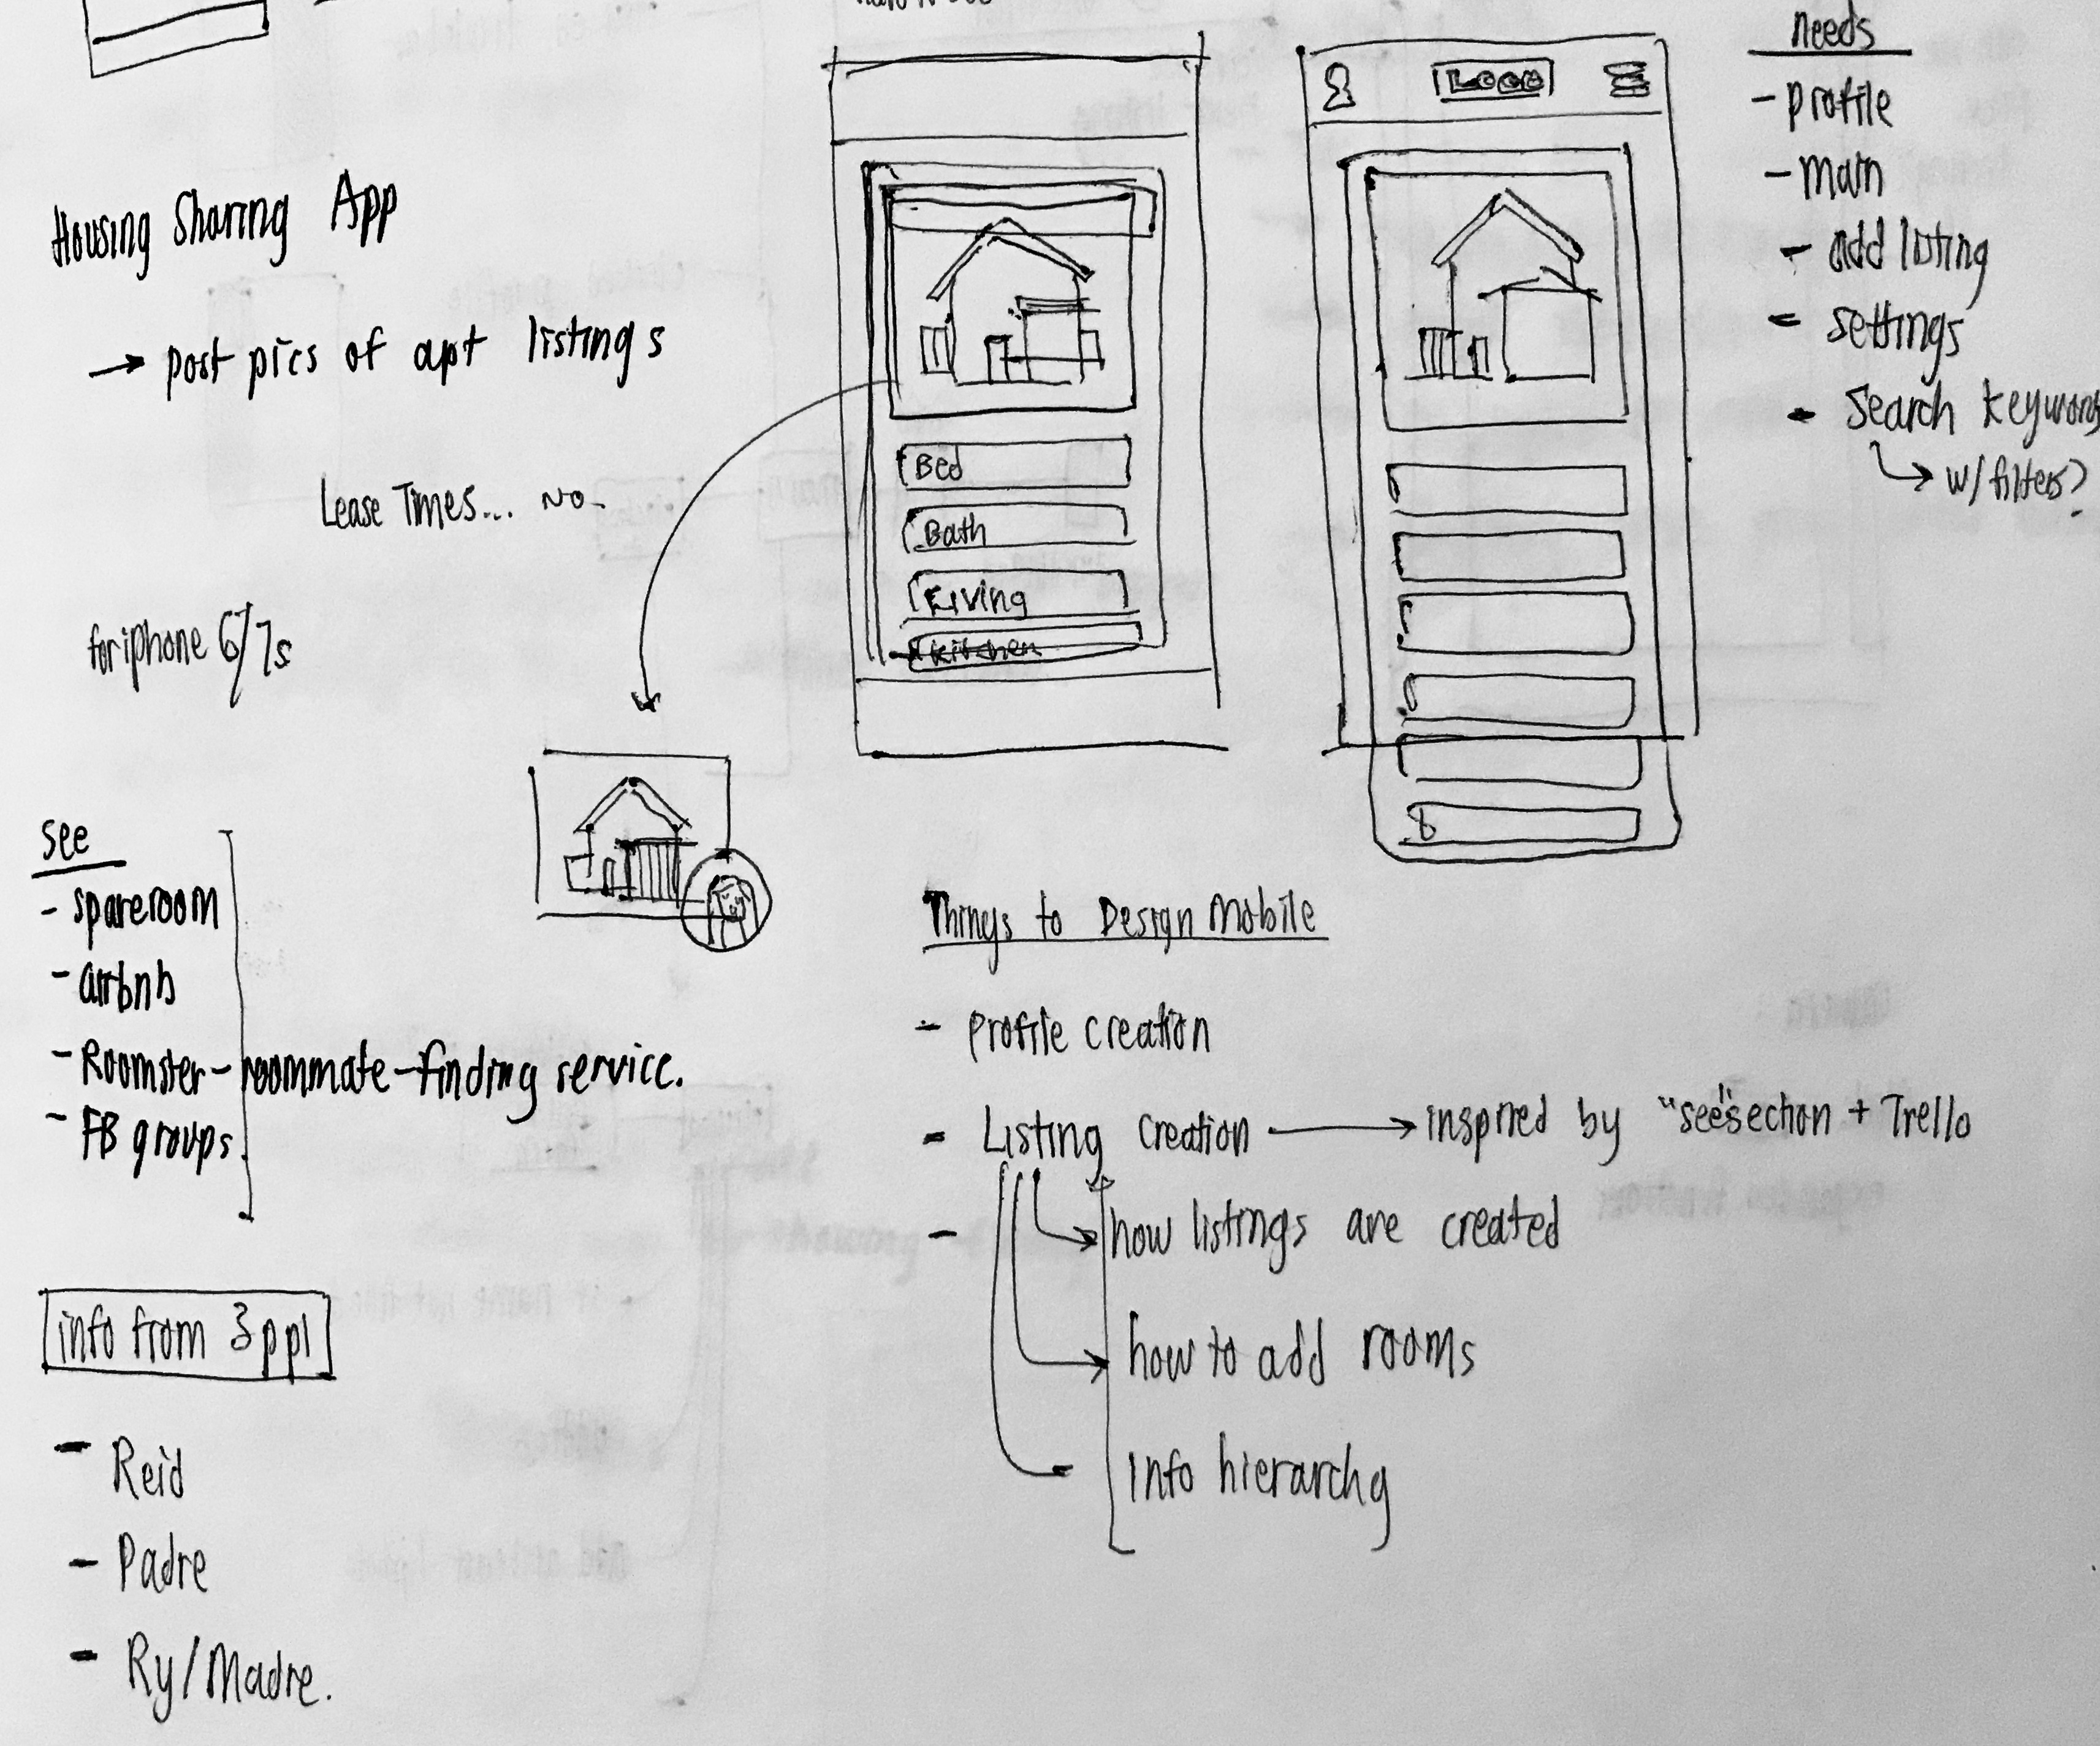 Housing Sharing App
→ post pics of apt listings
Lease Times... No.
for iphone 6/7s
see
- spareroom
- airbnb
- Roomster - roommate-finding service.
- FB groups.
info from 3 ppl
- Reid
- Padre
- Ry/Madre.
Bed
Bath
Living
Kitchen
LOGO
needs
- profile
- main
- add listing
- settings
- Search keywords
→ w/ filters?
Things to Design Mobile
- Profile creation
- Listing creation → inspired by "see" section + Trello
- how listings are created
how to add rooms
Info hierarchy